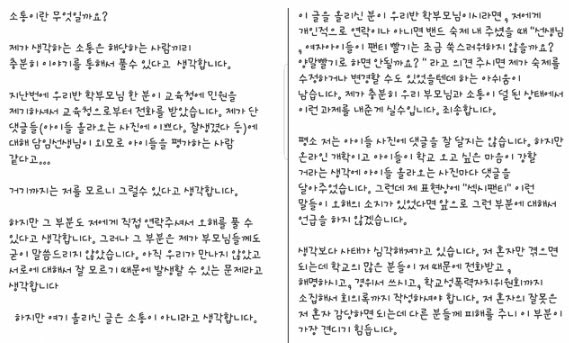 소통이란 무엇일까요?
제가 생각하는 소통은 해당하는 사람끼리
충분히 이야기를 통해서 풀수 있다고 생각합니다.
지난번에 우리반 학부모님 한 분이 교육청에 민원을
제기하셔서 교육청으로부터 전화를 받았습니다. 제가 단
댓글들(아이들 올라오는 사진에 이쁘다. 잘생겼다 등)에
대해 담임선생님이 외모로 아이들을 평가하는 사람
같다고...
거기까지는 저를 모르니 그럴수 있다고 생각합니다.
하지만 그 부분도 저에게 직접 연락주셔서 오해를 풀 수
있다고 생각합니다. 그러나 그 부분은 제가 부모님들께도
굳이 말씀드리지 않았습니다. 아직 우리가 만나지 않았고
서로에 대해서 잘 모르기 때문에 발생할 수 있는 문제라고
생각합니다
하지만 여기 올리신 글은 소통이 아니라고 생각합니다.
이 글을 올리신 분이 우리반 학부모님이시라면, 저에게
개인적으로 연락이나 아니면 밴드 숙제 내 주셨을 때 "선생님
, 여자아이들이 팬티 빨기는 조금 쑥스러워하지 않을까요?
양말빨기로 하면 안될까요? " 라고 의견 주시면 제가 숙제를
수정하거나 변경할 수도 있었을텐데 하는 아쉬움이
남습니다. 제가 충분히 우리 부모님과 소통이 덜 된 상태에서
이런 과제를 내준게 실수입니다. 죄송합니다.
평소 저는 아이들 사진에 댓글을 잘 달지는 않습니다. 하지만
온라인 개학이고 아이들이 학교 오고 싶은 마음이 강할
거라는 생각에 아이들 올라오는 사진마다 댓글을
달아주었습니다. 그런데 제 표현상에 "섹시팬티" 이런
말들이 오해의 소지가 있었다면 앞으로 그런 부분에 대해서
언급을 하지 않겠습니다.
생각보다 사태가 심각해져가고 있습니다. 저 혼자만 겪으면
되는데 학교의 많은 분들이 저 때문에 전화받고 ,
해명하시고, 경위서 쓰시고, 학교성폭력자치위원회까지
소집해서 회의록까지 작성하셔야 합니다. 저 혼자의 잘못은
저 혼자 감당하면 되는데 다른 분들께 피해를 주니 이 부분이
가장 견디기 힘듭니다.